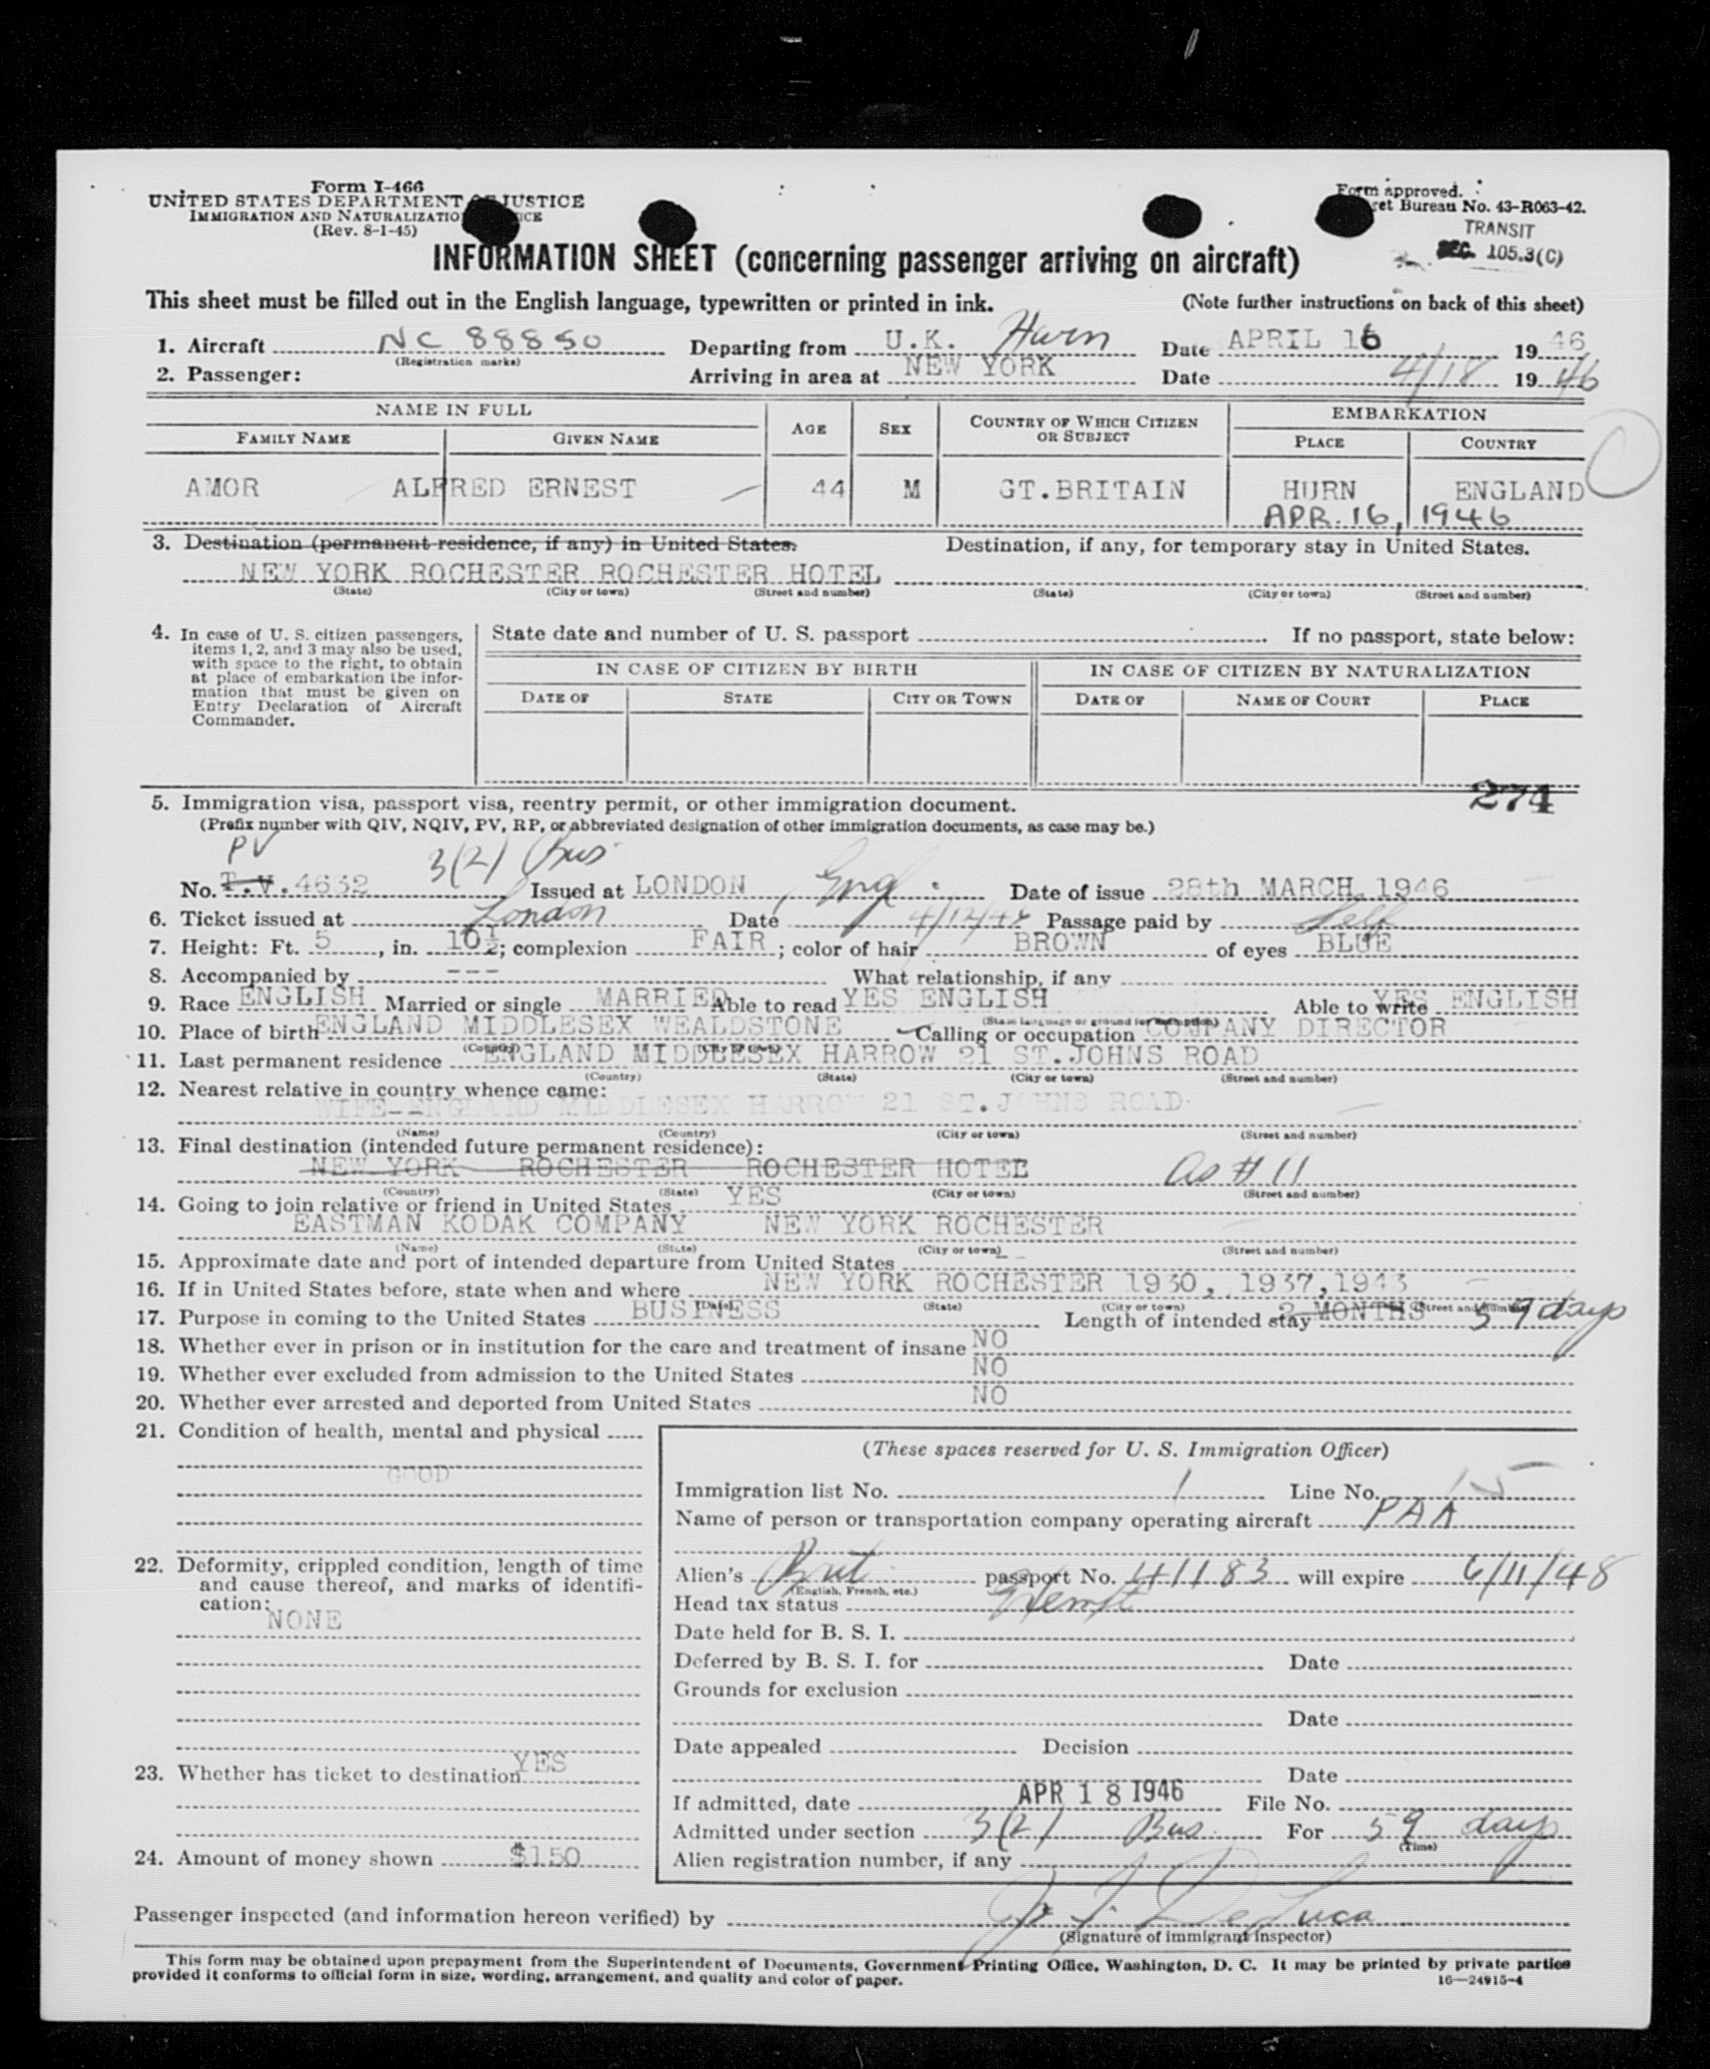 Form I-466
UNITED STATES DEPARTMENT OF JUSTICE
IMMIGRATION AND NATURALIZATION SERVICE
(Rev. 8-1-45)
Form approved.
Budget Bureau No. 43-R063-42.
TRANSIT
SEC. 105.3(C)
INFORMATION SHEET (concerning passenger arriving on aircraft)
This sheet must be filled out in the English language, typewritten or printed in ink. (Note further instructions on back of this sheet)
1. Aircraft NC 88850 Departing from U.K. Hurn Date APRIL 16 19 46
(Registration marks)
2. Passenger: Arriving in area at NEW YORK Date 4/18 19 46
NAME IN FULL AGE SEX COUNTRY OF WHICH CITIZEN OR SUBJECT EMBARKATION
FAMILY NAME GIVEN NAME PLACE COUNTRY
AMOR ALFRED ERNEST 44 M GT.BRITAIN HURN ENGLAND
APR. 16, 1946
3. Destination (permanent residence, if any) in United States. Destination, if any, for temporary stay in United States.
NEW YORK ROCHESTER ROCHESTER HOTEL
(State) (City or town) (Street and number) (State) (City or town) (Street and number)
4. In case of U. S. citizen passengers, items 1, 2, and 3 may also be used, with space to the right, to obtain at place of embarkation the information that must be given on Entry Declaration of Aircraft Commander.
State date and number of U. S. passport If no passport, state below:
IN CASE OF CITIZEN BY BIRTH IN CASE OF CITIZEN BY NATURALIZATION
DATE OF STATE CITY OR TOWN DATE OF NAME OF COURT PLACE
274
5. Immigration visa, passport visa, reentry permit, or other immigration document.
(Prefix number with QIV, NQIV, PV, RP, or abbreviated designation of other immigration documents, as case may be.)
PV 3(2) Bus
No. T.V. 4632 Issued at LONDON, Eng. Date of issue 28th MARCH 1946
6. Ticket issued at London Date 4/12/46 Passage paid by Self
7. Height: Ft. 5, in. 10½; complexion FAIR; color of hair BROWN of eyes BLUE
8. Accompanied by --- What relationship, if any
9. Race ENGLISH Married or single MARRIED Able to read YES ENGLISH Able to write YES ENGLISH
(State language or ground for exemption)
10. Place of birth ENGLAND MIDDLESEX WEALDSTONE Calling or occupation COMPANY DIRECTOR
(Country) (City or town)
11. Last permanent residence ENGLAND MIDDLESEX HARROW 21 ST.JOHNS ROAD
(Country) (State) (City or town) (Street and number)
12. Nearest relative in country whence came:
WIFE--ENGLAND MIDDLESEX HARROW 21 ST.JOHNS ROAD
(Name) (Country) (City or town) (Street and number)
13. Final destination (intended future permanent residence):
NEW YORK ROCHESTER ROCHESTER HOTEL as # 11
(Country) (State) (City or town) (Street and number)
14. Going to join relative or friend in United States YES
EASTMAN KODAK COMPANY NEW YORK ROCHESTER
(Name) (State) (City or town) (Street and number)
15. Approximate date and port of intended departure from United States
16. If in United States before, state when and where NEW YORK ROCHESTER 1930, 1937, 1943
(Date) (State) (City or town) (Street and number)
17. Purpose in coming to the United States BUSINESS Length of intended stay 2 MONTHS 59 days
18. Whether ever in prison or in institution for the care and treatment of insane NO
19. Whether ever excluded from admission to the United States NO
20. Whether ever arrested and deported from United States NO
21. Condition of health, mental and physical
GOOD
22. Deformity, crippled condition, length of time and cause thereof, and marks of identification:
NONE
23. Whether has ticket to destination YES
24. Amount of money shown $150
(These spaces reserved for U. S. Immigration Officer)
Immigration list No. 1 Line No. 15
Name of person or transportation company operating aircraft PAA
Alien's Brit passport No. 41183 will expire 6/11/48
(English, French, etc.)
Head tax status Exempt
Date held for B. S. I.
Deferred by B. S. I. for Date
Grounds for exclusion
Date
Date appealed Decision
Date
If admitted, date APR 18 1946 File No.
Admitted under section 3(2) Bus. For 59 days
(Time)
Alien registration number, if any
Passenger inspected (and information hereon verified) by J. F. DeLuca
(Signature of immigrant inspector)
This form may be obtained upon prepayment from the Superintendent of Documents, Government Printing Office, Washington, D. C. It may be printed by private parties
provided it conforms to official form in size, wording, arrangement, and quality and color of paper. 16—24915-4